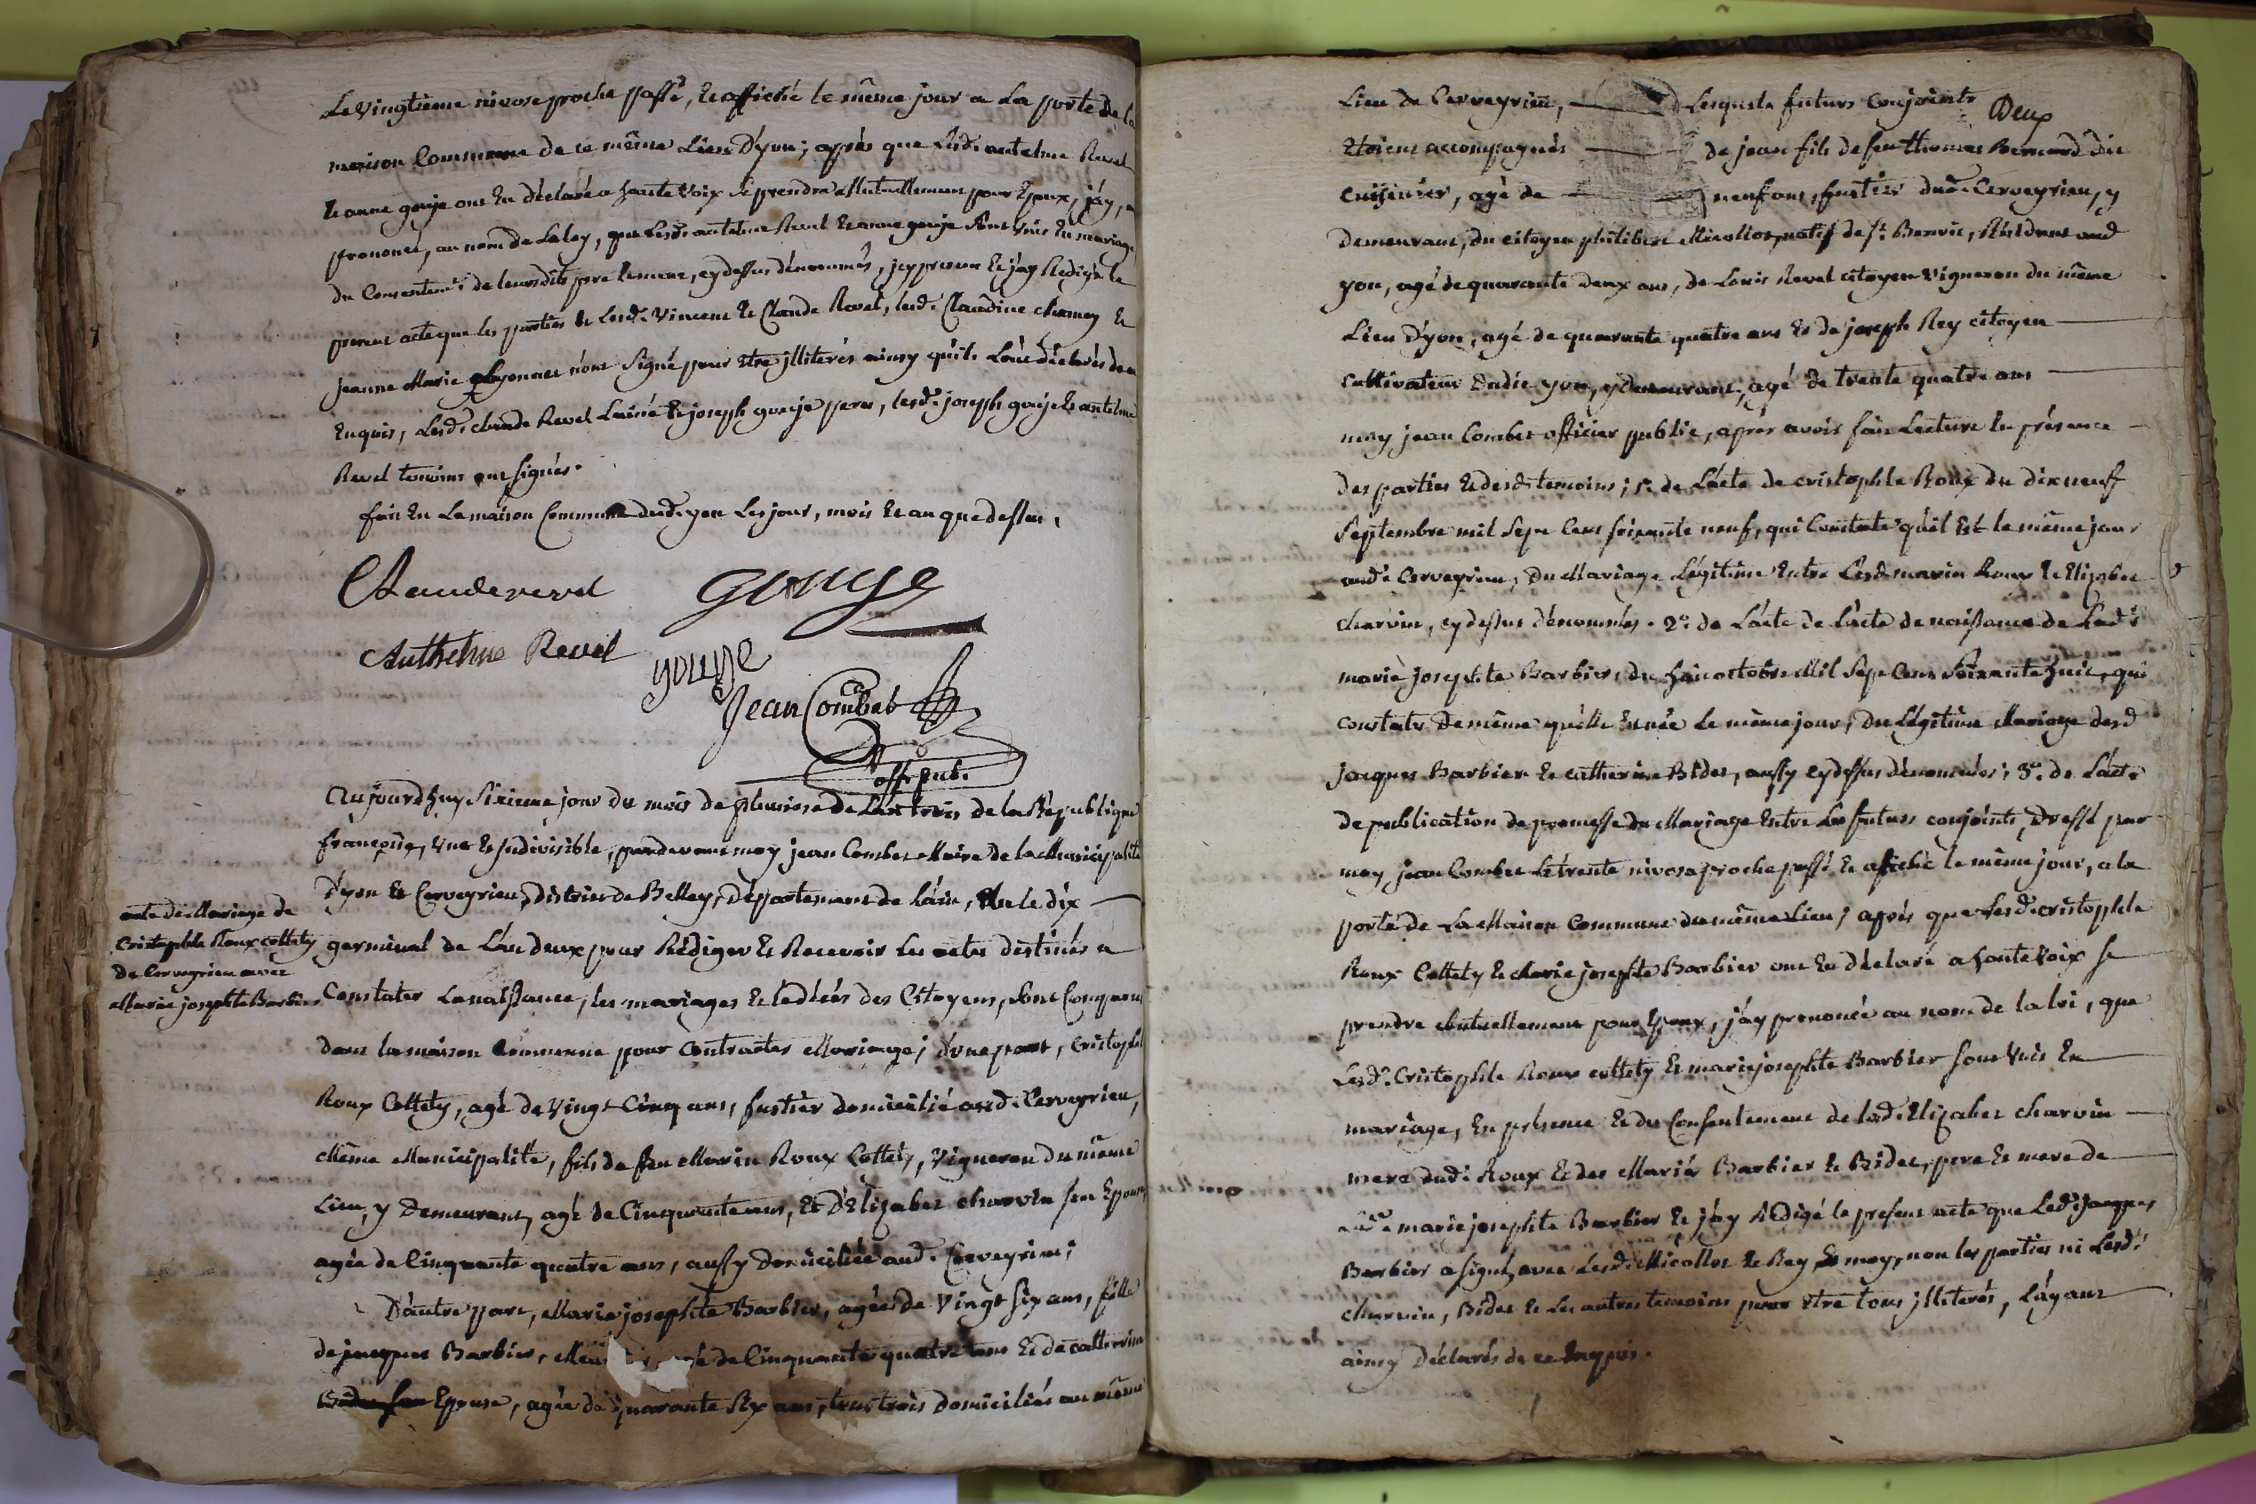 Le vingtieme nivose proche passé, et affiché le même jour a la porte de la
maison Commune de ce même Lieu d'yon; après que Lesd. antelme Revel
et anne gouje ont eu déclaré a haute voix se prendre Mutuellement pour Epoux, j'ay,
prononcé, au nom de La loy, que Lesd. antelme Revel et anne gouje sont unis en mariage
du Consentemt. de leursdits pere et mere, cy dessus dénommés, et j'ay Redigé le
present acte que les parties et Lesd. Vincent et Claude Revel, lesd. Claudine chamoy et
jeanne Marie guyonnet n'ont signé pour être jlliterés ainsy qu'ils l'ont déclarés de ce
Enquis, Lesd. claude Revel Lainé et joseph gouje peres, lesd. joseph gouje et antelme
Revel temoins ont signés.
fait En La maison Commune dud. yon Les jour, mois et an que dessus.
Claude revel gouge
Anthelme Revel gouge
Jean Combet
offr. pub.
Aujourd'huy Sixieme jour du mois de pluviose de L'an trois de la Republique
françoise, une et indivisible, pardevant moy jean Combet Maire de la Municipalité
d'yon et Cerveyrieu, District de Belley, Département de l'ain, Elu le dix
germinal de L'an deux pour Rédiger et Recevoir Les actes destinés a
acte de Mariage de
Cristophle Roux collety
de Cerveyrieu avec
Marie josephte Barbier
Constater La naissance, les mariages et le décés des Citoyens, sont Comparus
dans la maison Commune pour Contracter Mariage; d'une part, Cristophle
Roux Collety, agé de Vingt Cinq ans, fustier domicilié aud. Cerveyrieu,
Même Municipalité, fils de feu Marin Roux Collety, Vigneron du même
Lieu, y Demeurant, agé de Cinquante ans, et d'Elizabet charvin son Epouse
agée de Cinquante quatre ans, aussy domiciliée aud. Cerveyrieu;
D'autre part, Marie josephte Barbier, agée de Vingt six ans, fille
de jacques Barbier, de Cinquante quatre ans et de catherine
Epouse, agée de quarante six ans, tous trois Domiciliés au même
Lieu de Cerveyrieu, Lesquels futurs Conjoints
Deux
Etoient accompagnés de jean fils de feu thomas Bernard dit
cuisinier, agé de neuf ans, fustier dud. Cerveyrieu, y
Demeurant, du citoyen philibert Micollot, natif de st. Benoit, Résident aud.
yon, agé de quarante deux ans, de Louis Revel citoyen Vigneron du même
Lieu d'yon, agé de quarante quatre ans et de joseph Rey citoyen
Cultivateur dudit yon, y demeurant, agé de trente quatre ans
moy jean Combet officier public, après avoir fait Lecture En présence
des parties et desd. temoins; 1° de L'acte de cristophle Roux du dix neuf
Septembre mil Sept Cent soixante neuf, qui Constate qu'il Est le même jour
aud. Cerveyrieu, du Mariage Légitime Entre Lesd. marin Roux et Elizabet
charvin, cy dessus dénommés. 2° de L'acte de L'acte de naissance de Lad.
marie josephte Barbier, du huit octobre Mil Sept Cent Soixante huit, qui
constate de même qu'elle Est née Le même jour, du Légitime Mariage desd.
jacques Barbier et catherine Bidet, aussy cy dessus dénommés; 3° de L'acte
de publication de promesse de Mariage Entre Les futurs conjoints, Dressé par
moy jean Combet Le trente nivose proche passé et affiché le même jour, a la
porte de La Maison Commune du même Lieu; après que Lesd. cristophle
Roux Collety et Marie josephte Barbier ont Eu déclaré a haute Voix se
prendre Mutuellement pour Epoux, j'ay prononcé au nom de la loi, que
Lesd. Cristophle Roux collety et marie josephte Barbier sont unis En
mariage, En présence et du Consentement de lad. Elizabet charvin
mere dud. Roux et des Mariés Barbier et Bidet, pere et mere de
Lad. marie josephte Barbier et j'ay Rédigé le present acte que Led. jacques
Barbier a signé, avec Lesd. Micollot et Rey et moy, non les parties ni Lesd.
charvin, Bidet et Les autres temoins pour être tous jlliterés, L'ayant
ainsy Déclarés de ce Enquis.